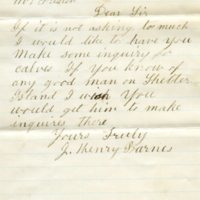 Dear Sir
If it is not asking to much
I would like to have you
Make som inquiry for
calves If You know of
any good man on Shelter
Island I wish You
would get him to make
inquires there
Yours Truly
J. Henry Barnes